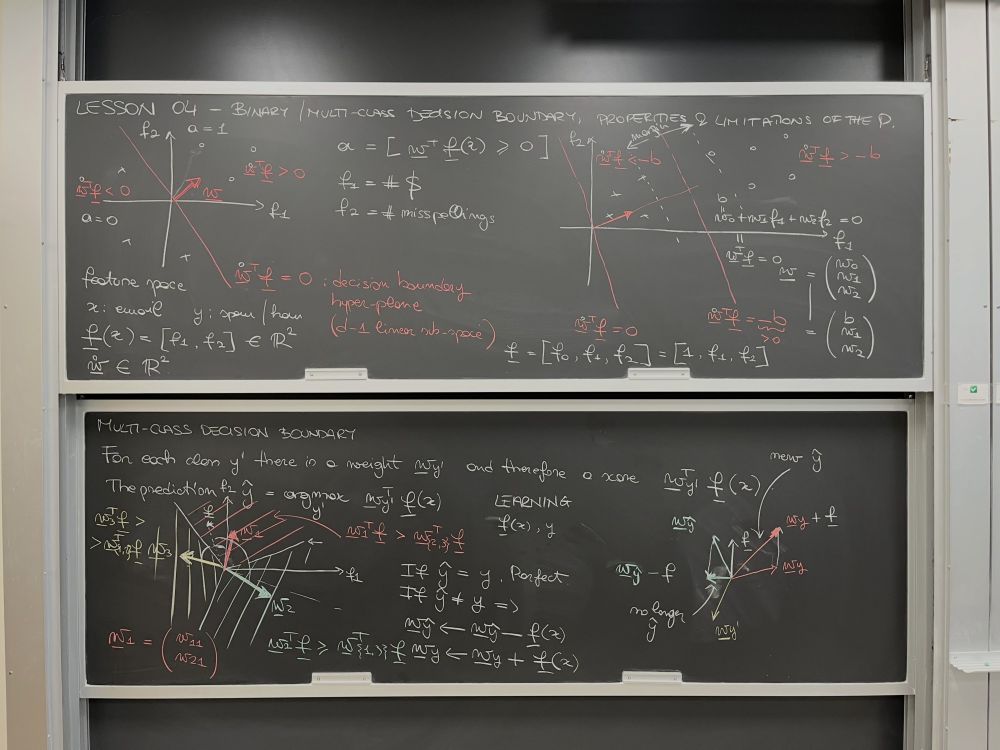 LESSON 04 – BINARY/MULTI-CLASS DECISION BOUNDARY, PROPERTIES & LIMITATIONS OF THE P.
f₂ a = 1
ẘᵀf > 0
w
ẘᵀf < 0
a = 0
f₁
feature space
x: email y: spam/ham
f(x) = [f₁, f₂] ∈ ℝ²
ẘ ∈ ℝ²
a = [wᵀ f(x) ⩾ 0]
f₁ = # $
f₂ = # misspellings
ẘᵀf = 0 : decision boundary
hyper-plane
(d-1 linear sub-space)
f₂
margin
ẘᵀf < -b
ẘᵀf > -b
b
w₀ + w₁f₁ + w₂f₂ = 0
f₁
wᵀf = 0
w = (w₀ w₁ w₂)
= (b w₁ w₂)
ẘᵀf = 0
ẘᵀf = -b
>0
f = [f₀, f₁, f₂] = [1, f₁, f₂]
MULTI-CLASS DECISION BOUNDARY
For each class y' there is a weight wy' and therefore a score wy'ᵀ f(x)
The prediction ŷ = argmax wy'ᵀ f(x)
y'
f₂
f
w₁
w₁ᵀf > wᵀ{2,3}f
w₃ᵀf >
> wᵀ{1,2}f
w₃
f₁
w₂
w₁ = (w₁₁ w₂₁)
w₂ᵀf ⩾ wᵀ{1,3}f
LEARNING
f(x), y
If ŷ = y, Perfect
If ŷ ≠ y =>
wŷ ← wŷ – f(x)
wy ← wy + f(x)
new ŷ
wŷ
f
wy + f
wy
wŷ – f
no longer
ŷ
wy'